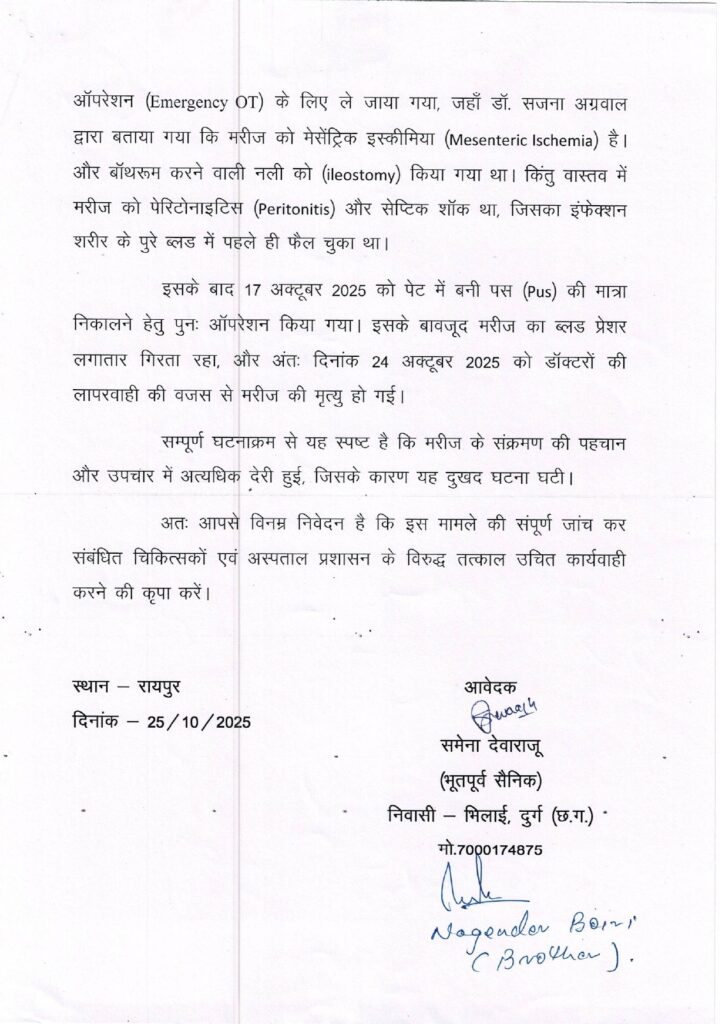 ऑपरेशन (Emergency OT) के लिए ले जाया गया, जहाँ डॉ. सजना अग्रवाल
द्वारा बताया गया कि मरीज को मेसेंट्रिक इस्कीमिया (Mesenteric Ischemia) है।
और बॉथरूम करने वाली नली को (ileostomy) किया गया था। किंतु वास्तव में
मरीज को पेरिटोनाइटिस (Peritonitis) और सेप्टिक शॉक था, जिसका इंफेक्शन
शरीर के पुरे ब्लड में पहले ही फैल चुका था।
इसके बाद 17 अक्टूबर 2025 को पेट में बनी पस (Pus) की मात्रा
निकालने हेतु पुनः ऑपरेशन किया गया। इसके बावजूद मरीज का ब्लड प्रेशर
लगातार गिरता रहा, और अंतः दिनांक 24 अक्टूबर 2025 को डॉक्टरों की
लापरवाही की वजस से मरीज की मृत्यु हो गई।
सम्पूर्ण घटनाक्रम से यह स्पष्ट है कि मरीज के संक्रमण की पहचान
और उपचार में अत्यधिक देरी हुई, जिसके कारण यह दुखद घटना घटी।
अतः आपसे विनम्र निवेदन है कि इस मामले की संपूर्ण जांच कर
संबंधित चिकित्सकों एवं अस्पताल प्रशासन के विरुद्ध तत्काल उचित कार्यवाही
करने की कृपा करें।
स्थान – रायपुर
आवेदक
दिनांक – 25/10/2025
समेना देवाराजू
(भूतपूर्व सैनिक)
निवासी – भिलाई, दुर्ग (छ.ग.)
मो.7000174875
Nagender Boini
(Brother).